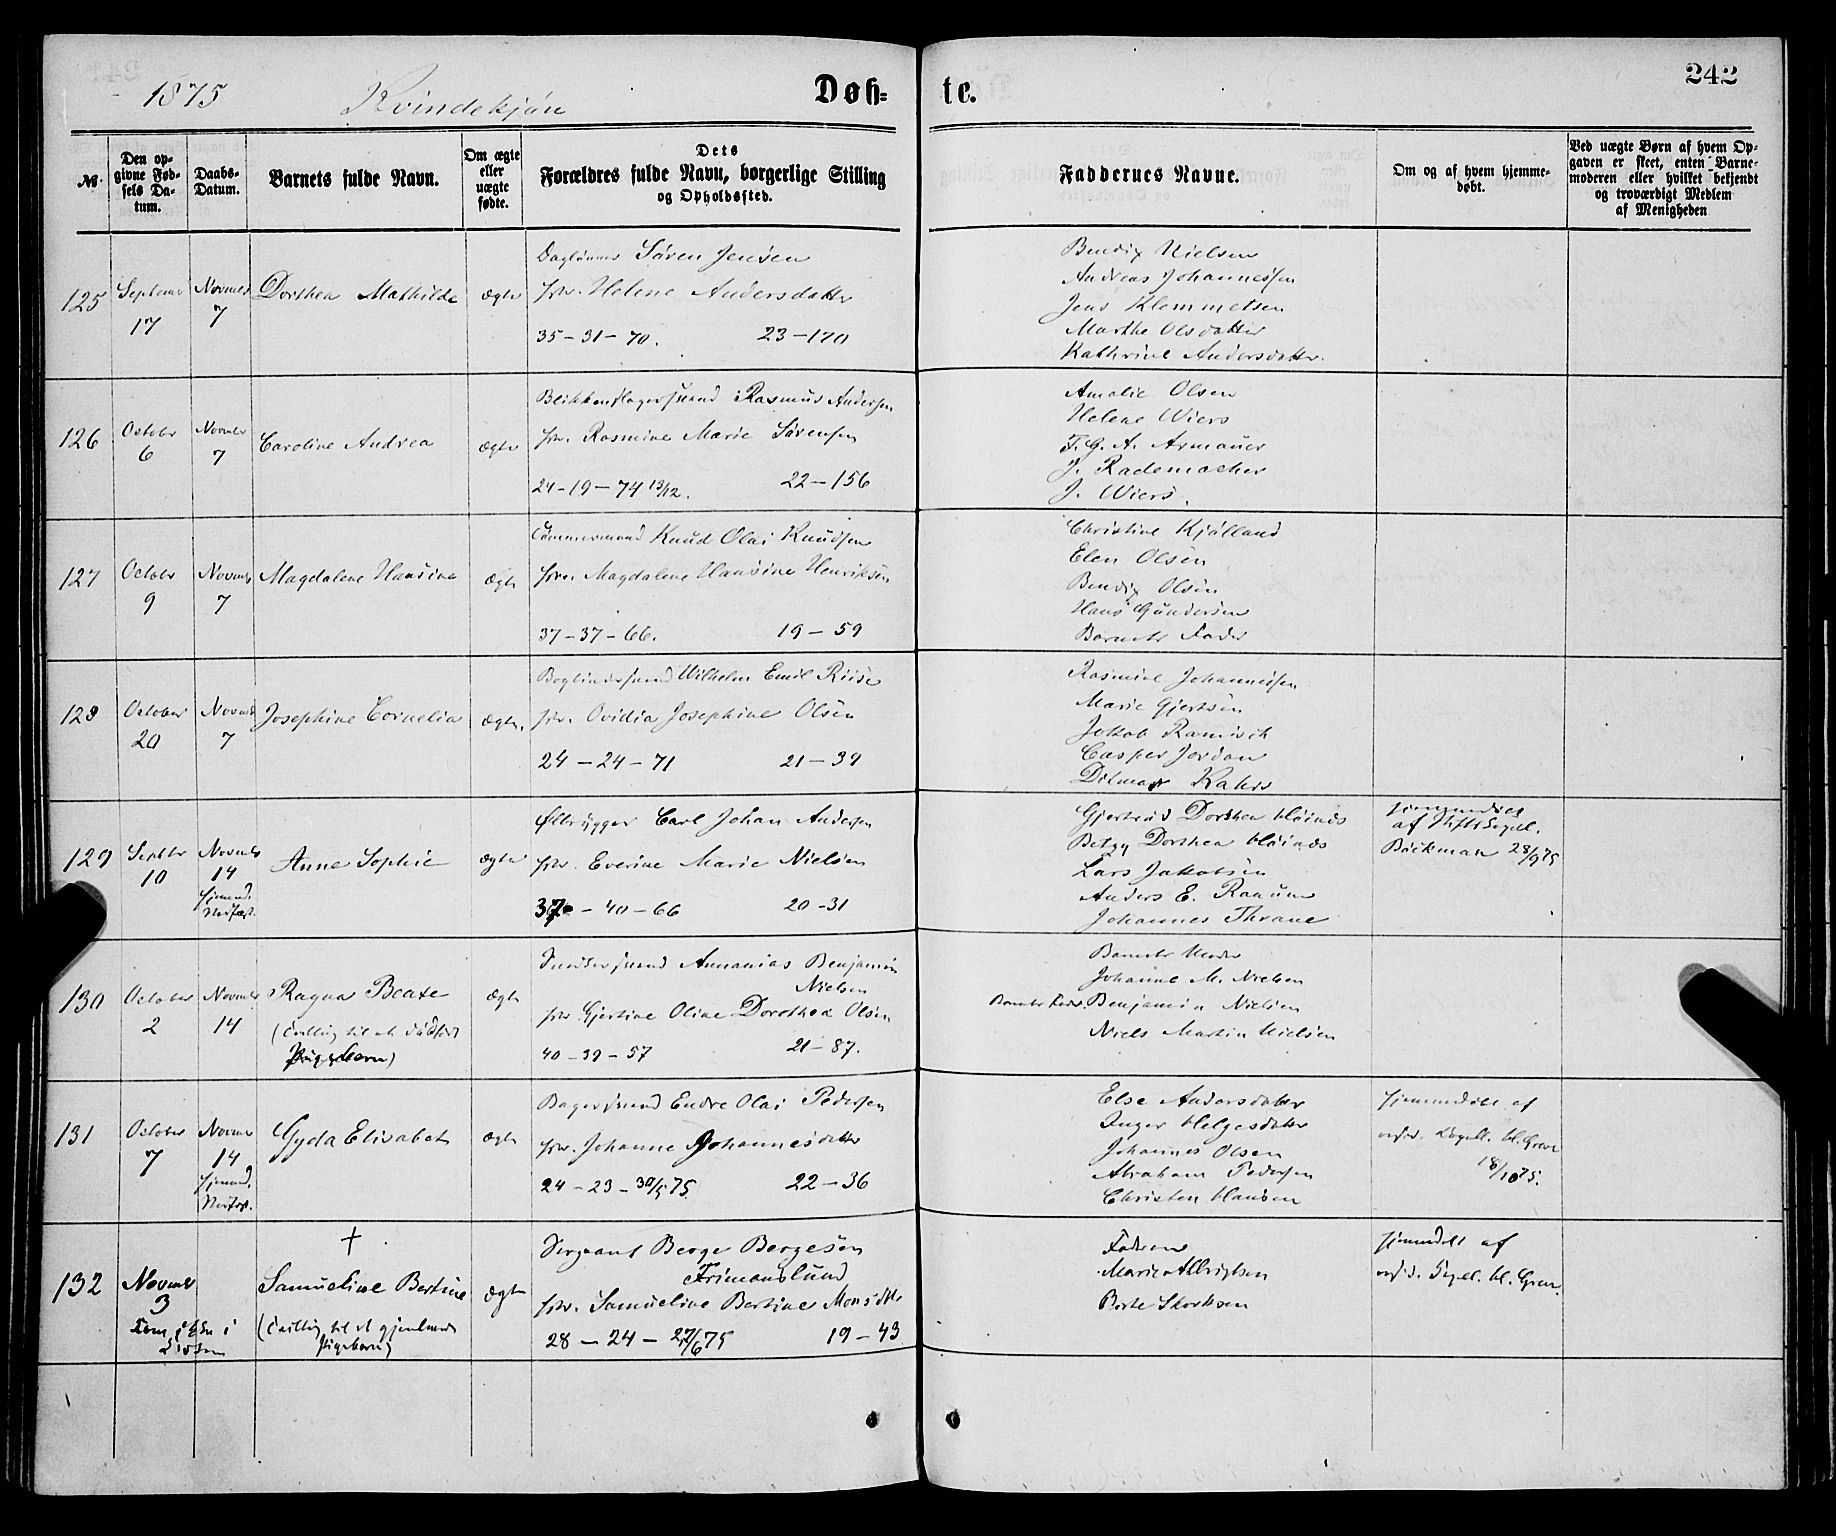 1875 Kvindekjøn Døb= te. 242
№ Den op-
givne Fød-
sels Da-
tum. Daabs-
Datum. Barnets fulde Navn. Om ægte
eller
uægte
fødte. Dets
Forældres fulde Navn, borgerlige Stilling
og Opholdssted. Faddernes Navne. Om og af hvem hjemme-
døbt. Ved uægte Børn af hvem Op-
gaven er skeet, enten Barne-
moderen eller hvilket bekjendt
og troværdigt Medlem
af Menigheden
125 Septembr
17
Novembr
7
Dorthea Mathilde
ægte
Dagleiner Søren Jensen
Helene Andersdatter
35-31-70. 23-170
Bendix Nielsen
Andreas Johannessen
Jens Klemmetsen
Marthe Olsdatter
Kathrine Andersdatter.
126 Octobr
6
Novmbr
7
Caroline Andrea
ægte
Blikkenslagersvend Rasmus Andersen
Rasmine Marie Sørensen
24-19-74 13/12. 22-156
Amalie Olsen
Helene Wiers
F. G. A. Armauer
J. Rademacher
J. Wiers.
127 Octobr
9
Novmbr
7
Magdalene Hansine
ægte
Tømmermand Knud Olai Knudsen
Magdalene Hansine Henriksen
37-37-66. 19-59
Christine Kjølland
Elen Olsen
Bendix Olsen
Hans Gundersen
Barnets Fader
128 October
20
Novmbr
7
Josephine Cornelia
ægte.
Bogbindersvend Wilhelm Emil Riise
Ovidia Josephine Olsen
24-24-71 21-39
Rasmine Johannessen
Marie Gjertsen
Jakob Ramisch
Casper Jordan
Ditmar Kahrs
129 Septbr
10
Novmbr
14
hjemmd.
Anne Sophie
ægte
Ølbrygger Carl Johan Andersen
Everine Marie Nielsen
37-40-66 20-31
Gjertrud Dorthea
Betzy Dorthea
Lars Jakobsen
Anders E. Ranum
Johannes Thrane
hjemmedøbt
af Stiftscapel.
Böckman 28/9 75
130 October
2
Novmbr
14
Ragna Beate
(Tvilling til et dødfødt
Pigebarn)
ægte
Snedkersvend Annanias Benjamin
Nielsen
Gjertine Oline Dorothea Olsen
40-39-57 21-87.
Barnets Moder
Johanne M. Nielsen
Barnets Fader. Benjamin Nielsen
Niels Martin Nielsen
131 October
7
Novmbr
14
hjemmd.
Gyda Elisabet
ægte
Bagersvend Endre Olai Pedersen
Johanne Johannesdatter
24-23-30/5 75 22-36
Else Andersdatter
Inger Helgesdatter
Johannes Olsen
Abraham Pedersen
Christen Hansen
hjemmedøbt af
18/10 75.
132 Novmbr
3
†
Samueline Bertine
(Tvilling til et gjenlevende
Pigebarn)
ægte
Sergeant Berge Bergesen
Frimanslund
Samueline Bertine Monsdtr
28-24-27/6 75 19-43
Faderen
Marie Albrigtsen
Berte Skorksen
hjemmedøbt af